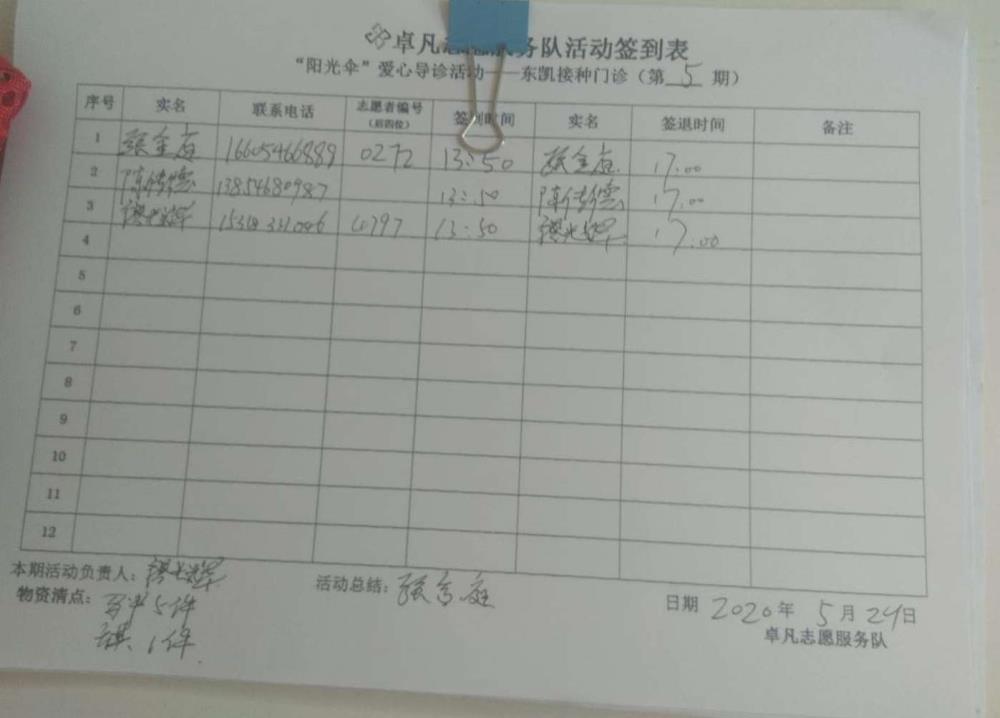 卓凡志愿服务队活动签到表
“阳光伞”爱心导诊活动——东凯接种门诊（第 5 期）
序号 实名 联系电话 志愿者编号（后四位） 签到时间 实名 签退时间 备注
1 16605466889 0272 13:50 17.00
2 陈传德 13854680987 13:50 陈传德 17.00
3 13:50 17.00
4
5
6
7
8
9
10
11
12
本期活动负责人：
活动总结：
物资清点： 5件
旗 1件
日期 2020年 5月 24日
卓凡志愿服务队